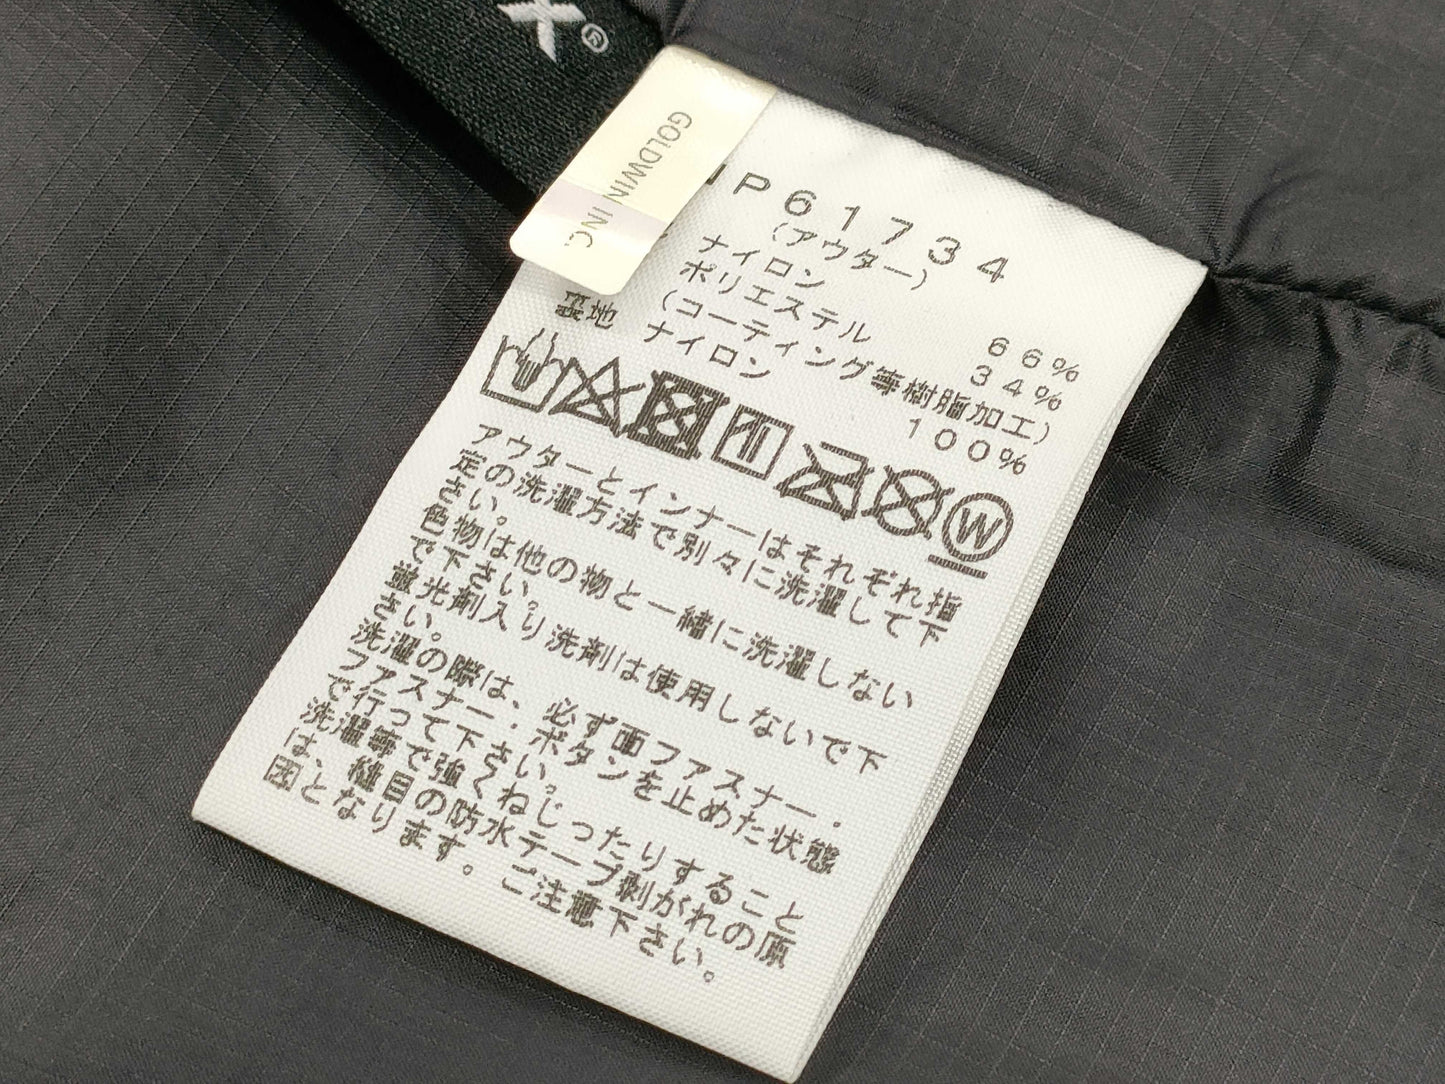 X®
GOLDWIN INC.
P61734
(アウター)
ナイロン 66%
ポリエステル 34%
(コーティング等樹脂加工)
裏地 ナイロン 100%
W
アウターとインナーはそれぞれ指
定の洗濯方法で別々に洗濯して下
さい。
色物は他の物と一緒に洗濯しない
で下さい。
蛍光剤入り洗剤は使用しないで下
さい。
洗濯の際は、必ず面ファスナー・
ファスナー・ボタンを止めた状態
で行って下さい。
洗濯等で強くねじったりすること
は、縫目の防水テープ剥がれの原
因となります。ご注意下さい。